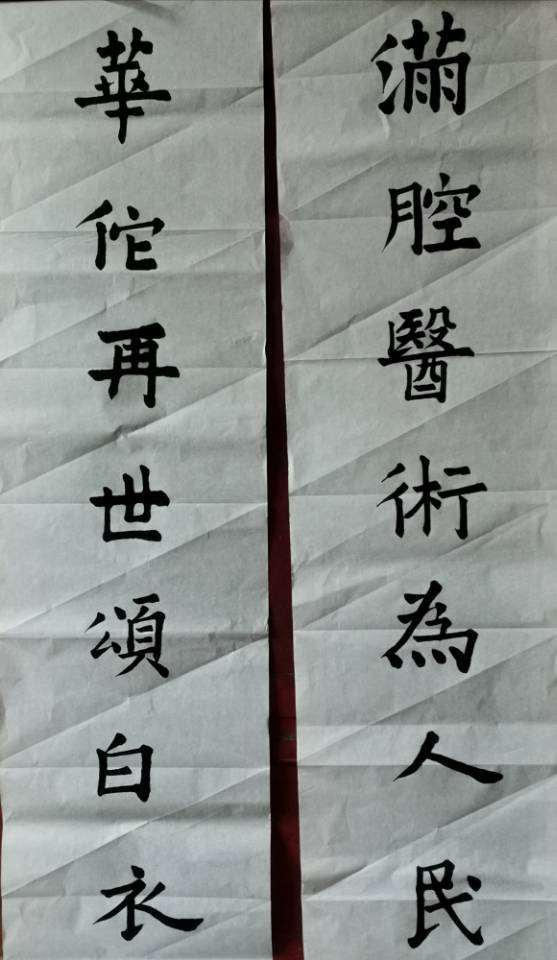 滿腔醫術為人民
華佗再世頌白衣